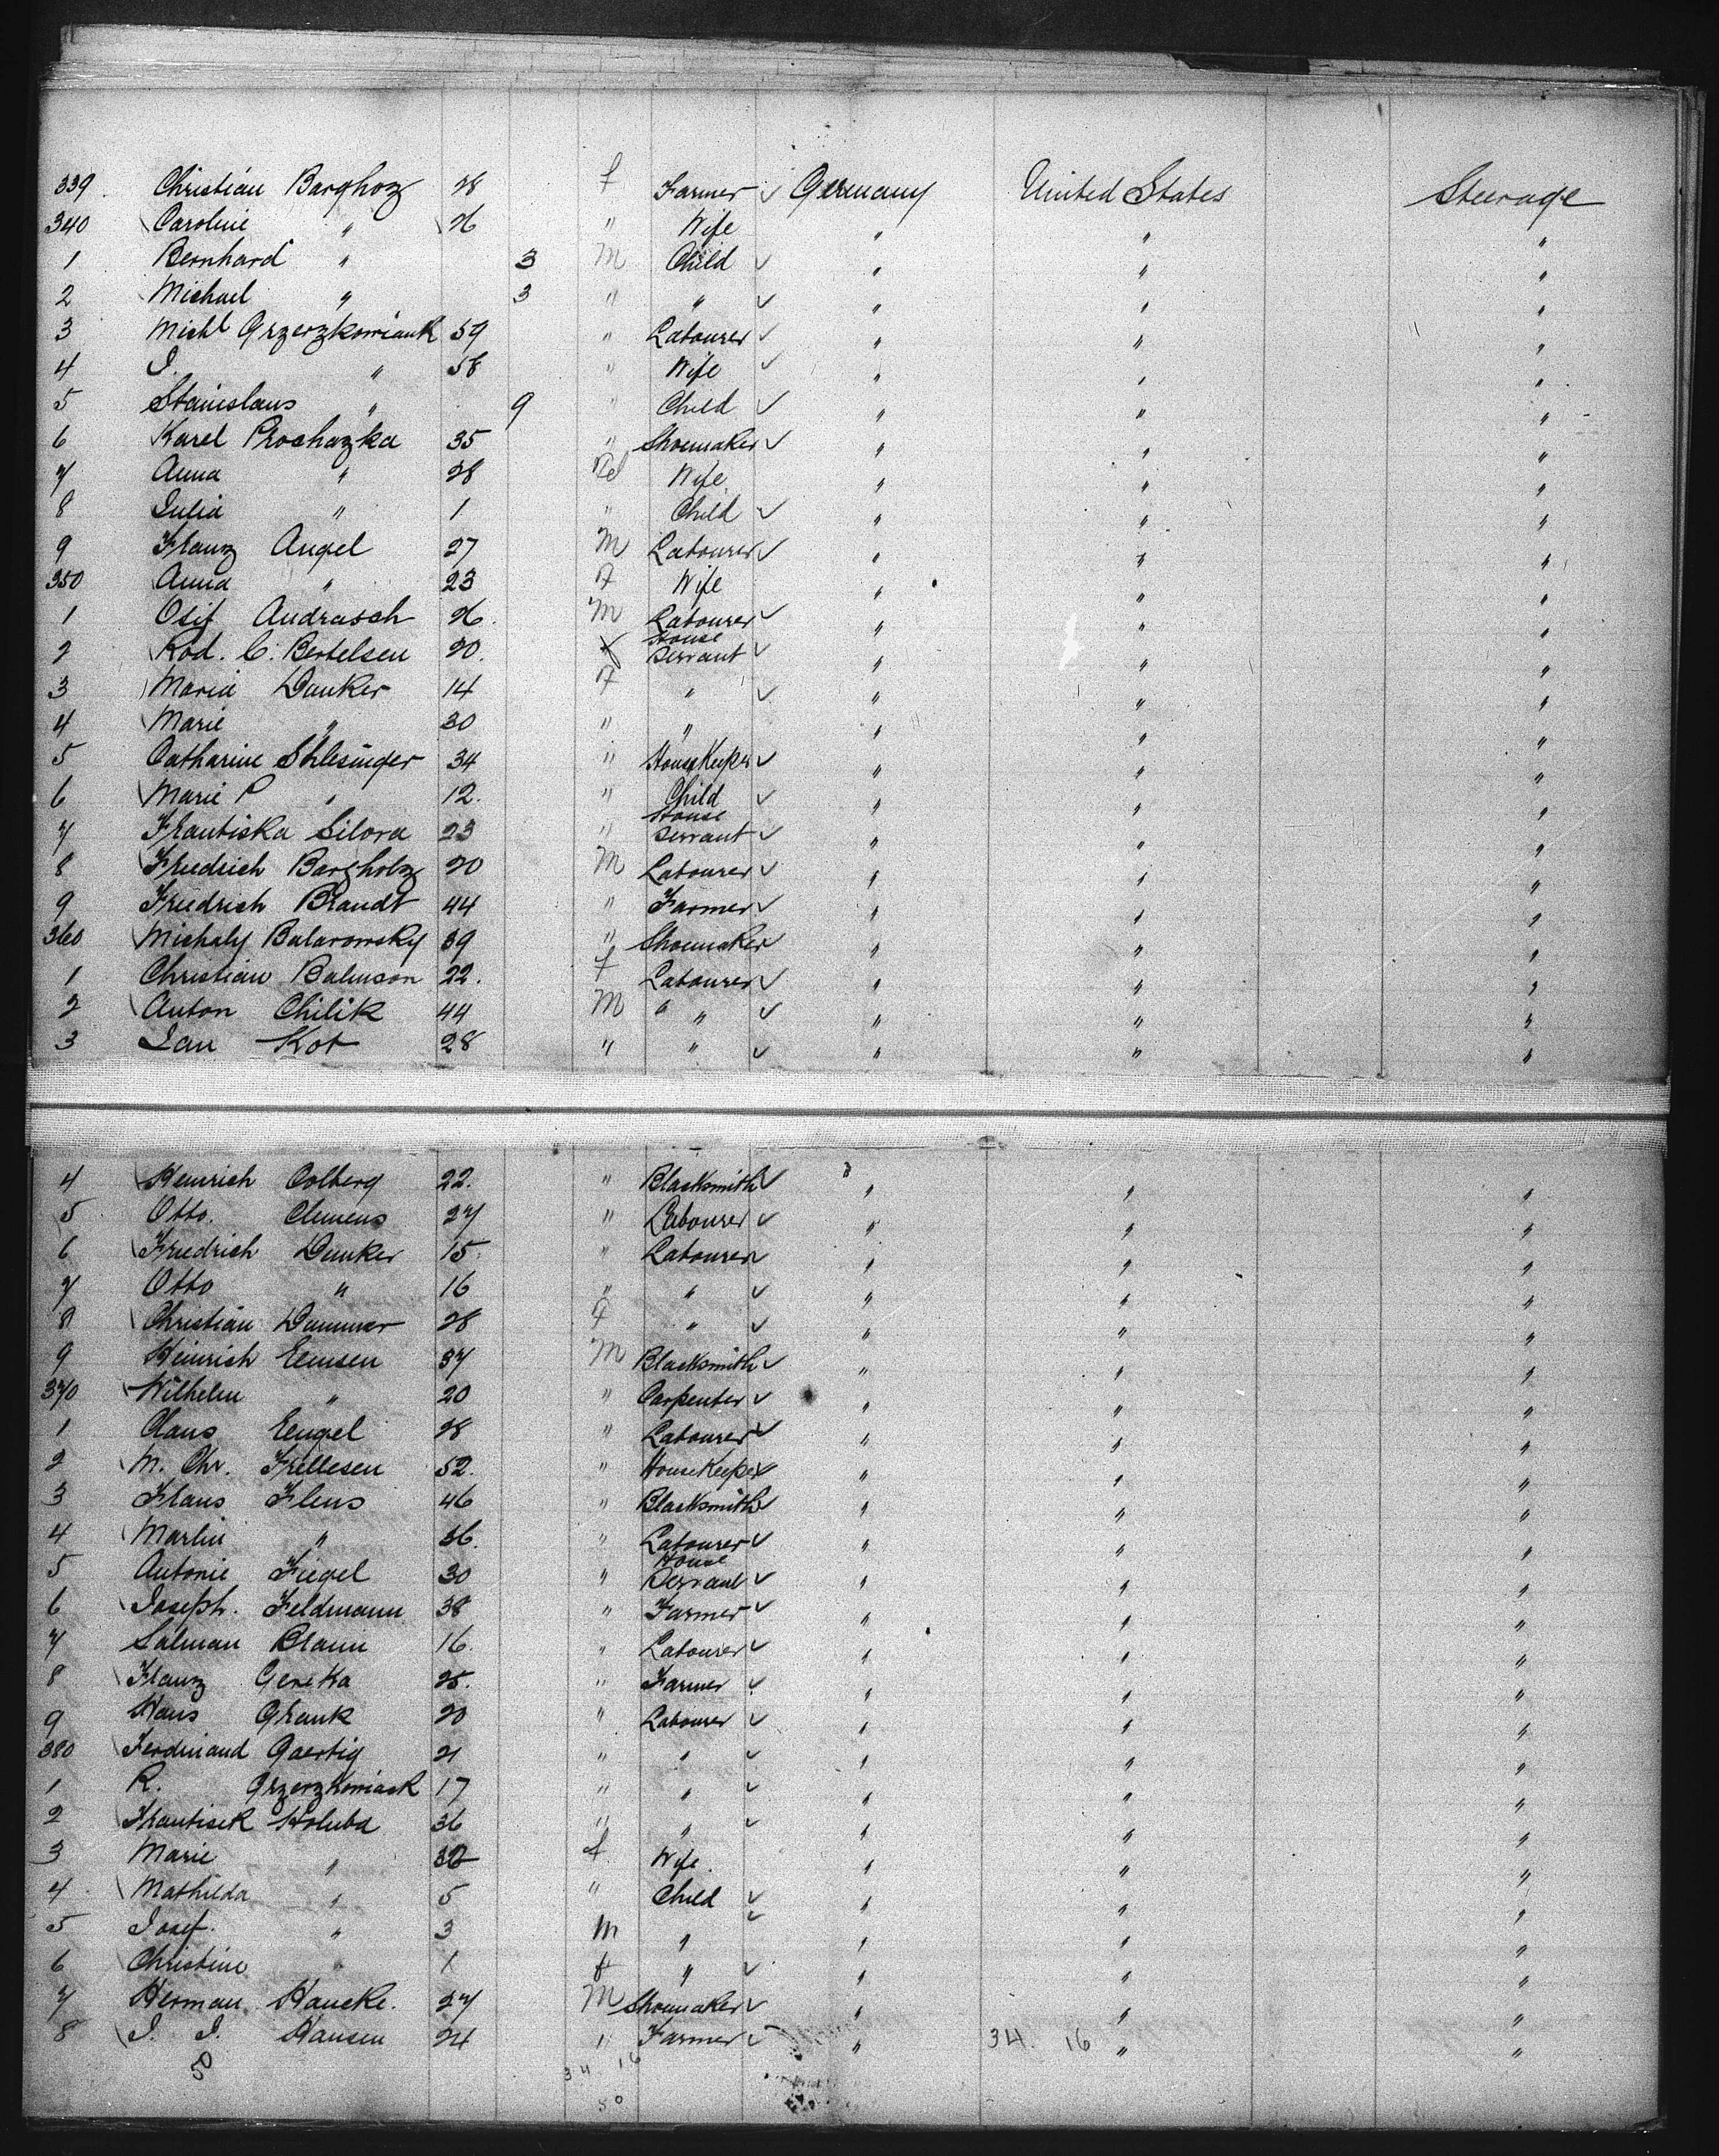 339 Christian Barghoz 28 f Farmer ✓ Germany United States Steerage
340 Caroline " 26 " Wife " " "
1 Bernhard " 3 M Child ✓ " " "
2 Michael " 3 " " ✓ " " "
3 Michl Grzerzkowiank 59 " Labourer ✓ " " "
4 I. " 58 " Wife ✓ " " "
5 Stanislaus " 9 " Child ✓ " " "
6 Karel Prochazka 35 " Shoemaker ✓ " " "
7 Anna " 28 Wife " " "
8 Julia " 1 " Child ✓ " " "
9 Franz Angel 27 M Labourer ✓ " " "
350 Anna " 23 f Wife " " "
1 Osif Andrasch 26. M Labourer ✓ " " "
2 Rod. C. Bertelsen 20. f House Servant ✓ " " "
3 Maria Danker 14 f " ✓ " " "
4 Marie " 30 " " " " "
5 Catharine Shlesinger 34 " House Keeper ✓ " " "
6 Marie P " 12. " Child ✓ " " "
7 Frantiska Silora 23 " House Servant ✓ " " "
8 Friedrich Bargholz 20 M Labourer ✓ " " "
9 Friedrich Brandt 44 " Farmer ✓ " " "
360 Michaly Balarowsky 39 " Shoemaker ✓ " " "
1 Christian Balmson 22. f Labourer ✓ " " "
2 Anton Chilik 44 M " " ✓ " " "
3 Jan Kot 28 " " ✓ " " "
4 Heinrich Colberg 22. " Blacksmith ✓ " " "
5 Otto. Clemens 27 " Labourer ✓ " " "
6 Friedrich Danker 15. " Labourer " " "
7 Otto " 16 " " ✓ " " "
8 Christian Dammer 28 f " ✓ " " "
9 Heinrich Eemsen 37 M Blacksmith ✓ " " "
370 Wilhelm " 20 " Carpenter ✓ " " "
1 Claus Eengel 28 " Labourer ✓ " " "
2 M. Chr. Frellesen 52. " House Keeper ✓ " " "
3 Flaus Flens 46 " Blacksmith ✓ " " "
4 Martin " 36. " Labourer ✓ " " "
5 Antonie Fiegel 30 " House Servant ✓ " " "
6 Joseph. Feldmann 38 " Farmer ✓ " " "
7 Salman Blann 16. " Labourer ✓ " " "
8 Franz Gereka 25. " Farmer ✓ " " "
9 Hans Ghank 20 " Labourer ✓ " " "
380 Ferdinand Gaertig 21 " " ✓ " " "
1 R. Grzerzkowiack 17 " " ✓ " " "
2 Frantisek Holuba 36 " " ✓ " " "
3 Marie " 32 f. Wife. " " "
4 Mathilda " 5 " Child ✓ " " "
5 Josef. " 3 M " ✓ " " "
6 Christine " 1 f " ✓ " " "
7 Herman Hancke. 27 M Shoemaker ✓ " " "
8 J. J. Hansen 24 " Farmer ✓ " 34. 16 " "
50 34 16
50